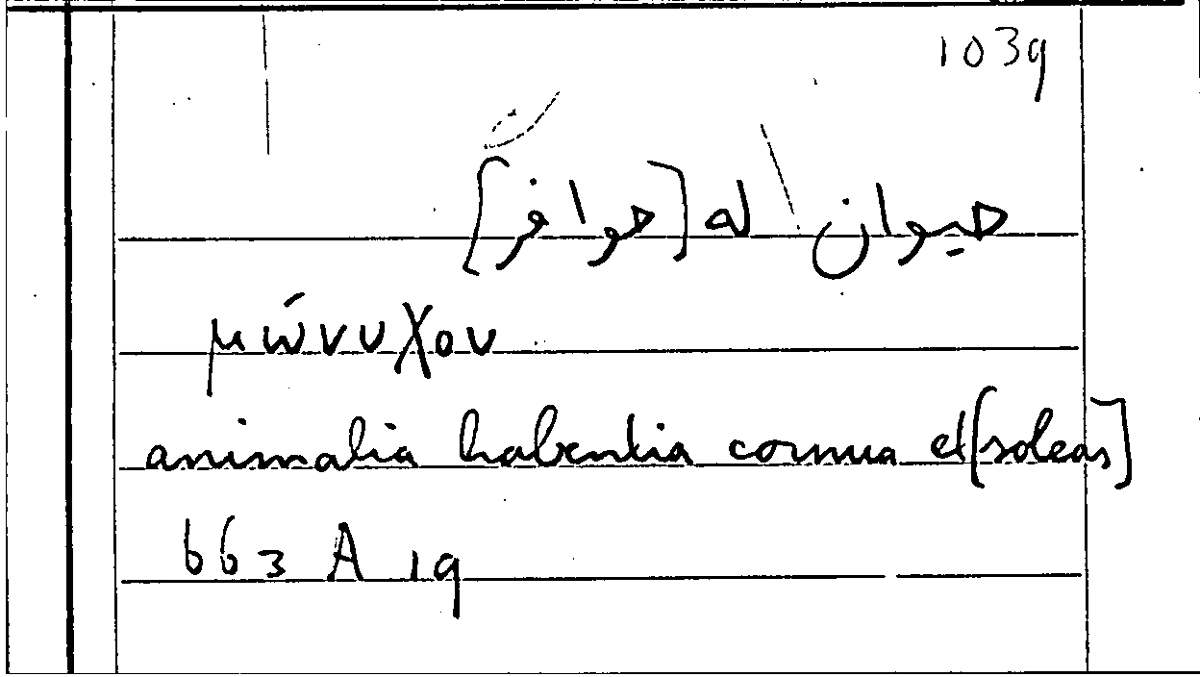 1039
حيوان له [حوافر]
μώνυχον
animalia habentia cornua et [soleas]
663 A 19